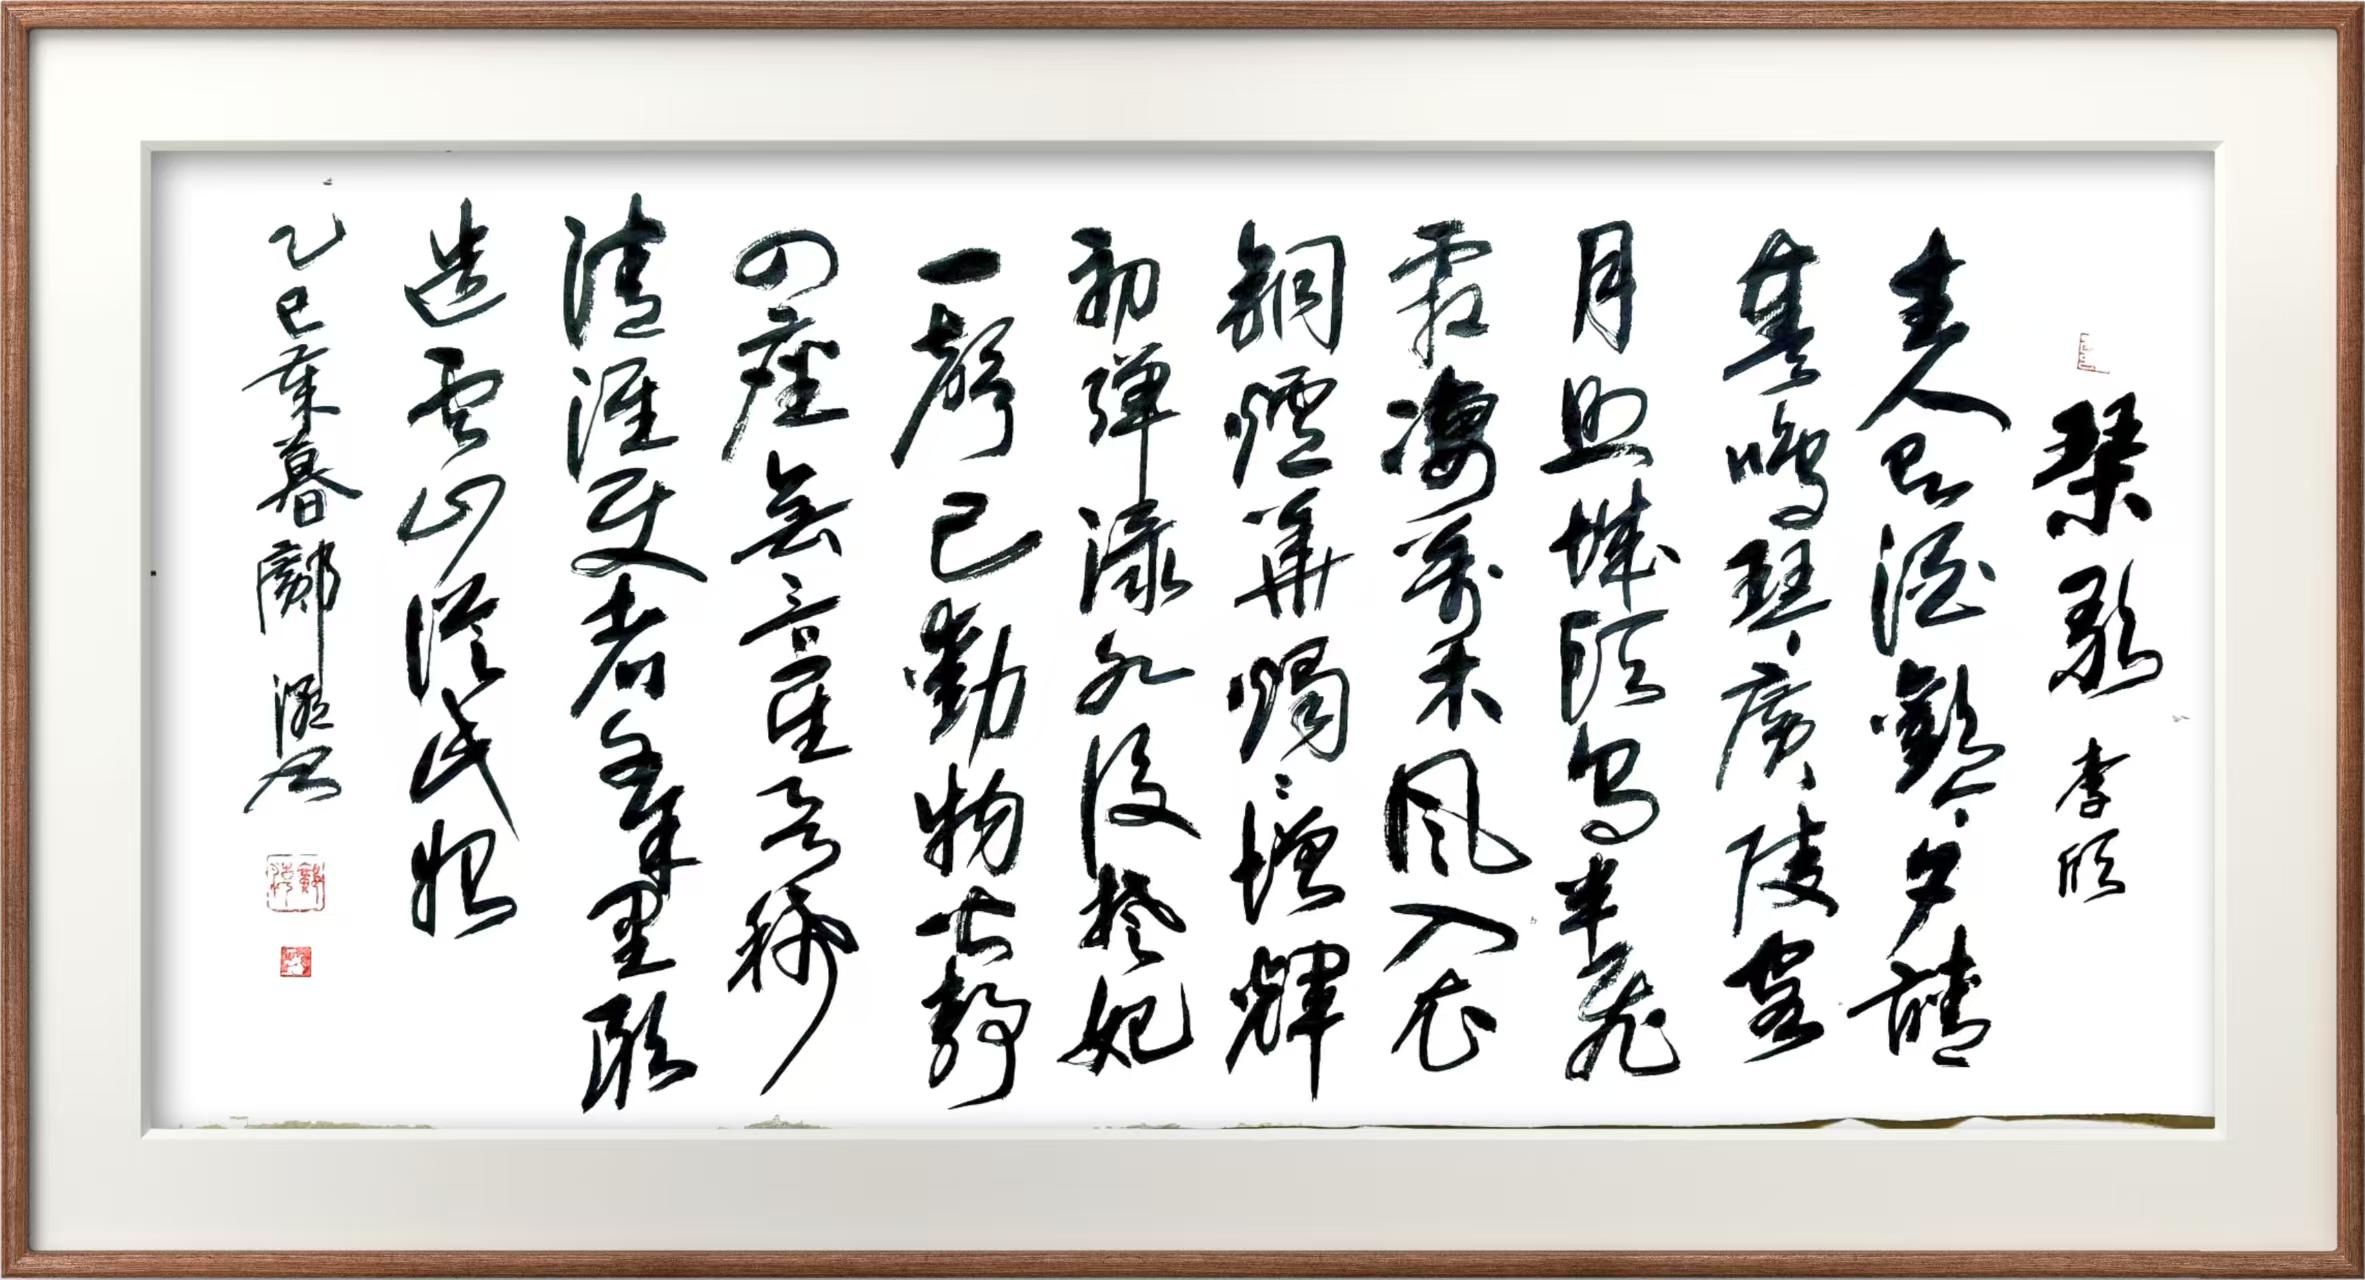 琴歌 李頎
主人有酒歡今夕請
奏鳴琴廣陵客
月照城頭烏半飛
霜凄萬木風入衣
銅爐華燭〻增輝
初彈淥水後楚妃
一聲已動物皆靜
四座無言星欲稀
清淮奉使千餘里敢
告雲山從此始
乙巳暮鄺